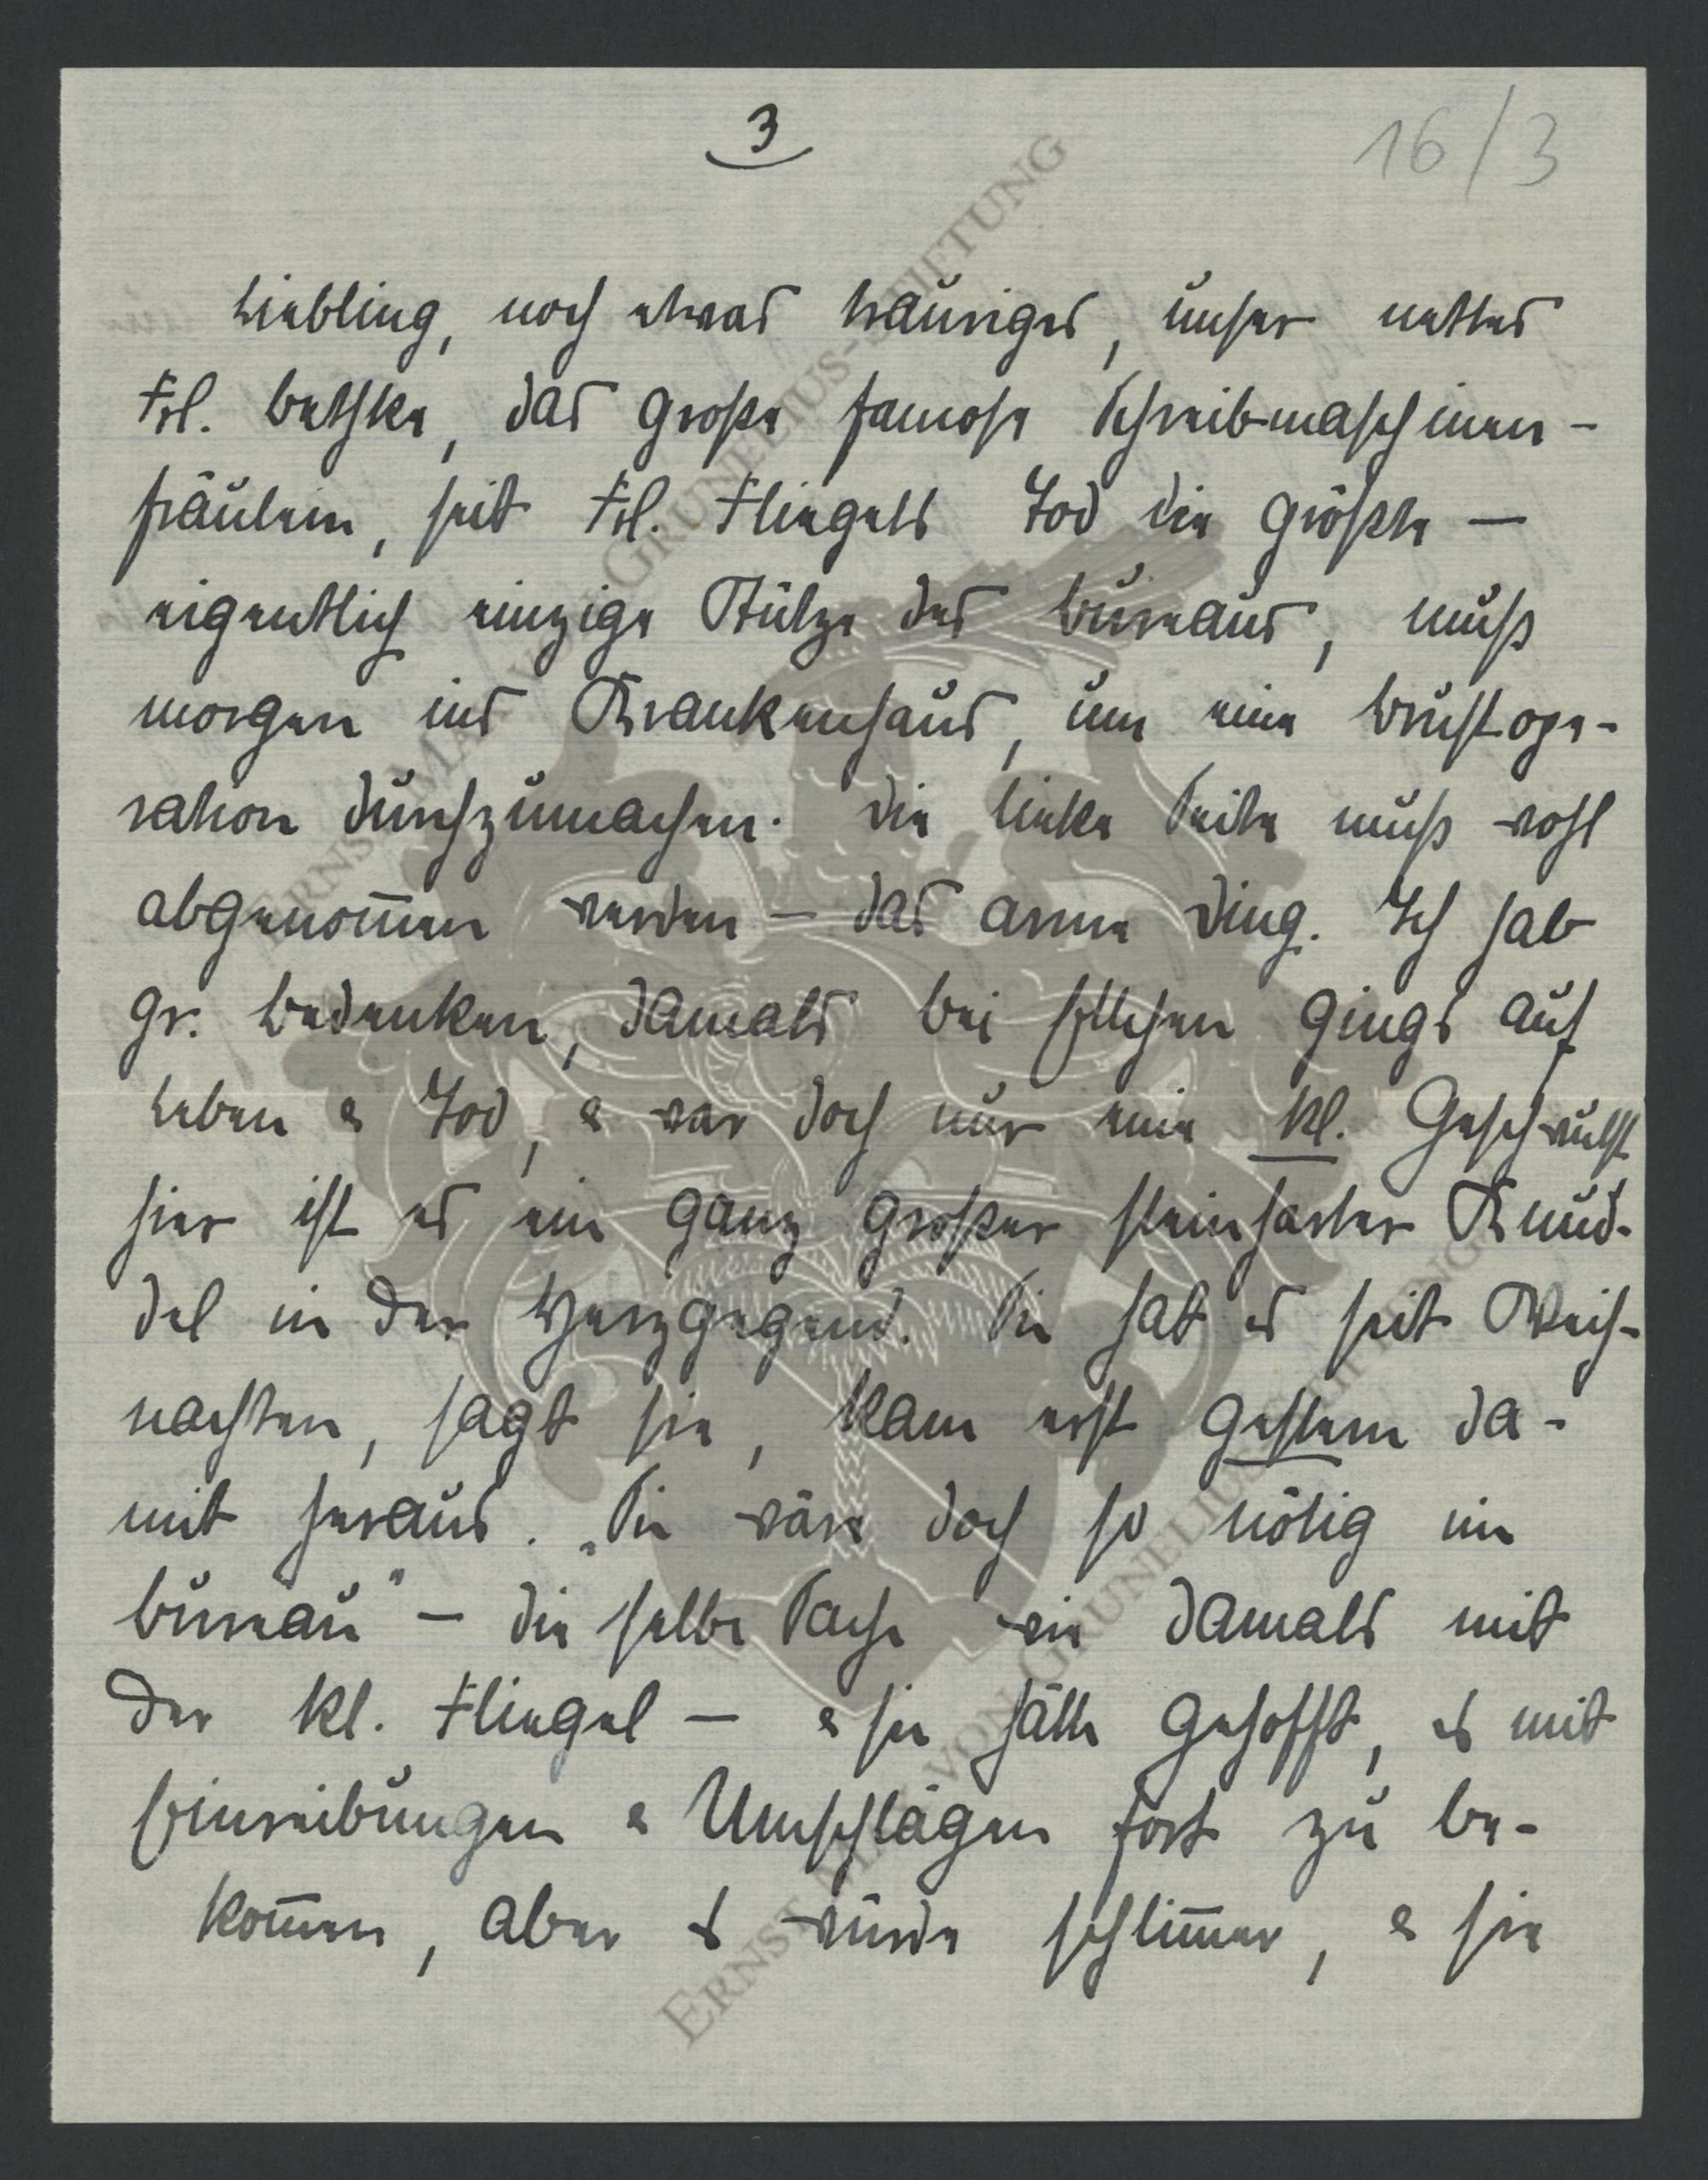 3
16/3
Liebling, noch etwas trauriges, unser nettes
Frl. Bethke, das große famose Schreibmaschinen-
fräulein, seit Frl. Fliegels Tod die größte —
eigentlich einzige Stütze des Bureaus, muß
morgen ins Krankenhaus, um eine Brustope-
ration durchzumachen. Die linke Seite muß wohl
abgenom̅en werden — das arme Ding. Ich hab
gr. Bedenken, damals bei gings auf
Leben & Tod, & war doch nur eine kl. Geschwulst
hier ist es ein ganz großer steinharter Knud-
del in der Herzgegend. Sie hat es seit Weih-
nachten, sagt sie, kam erst gestern da-
mit heraus. „Sie wäre doch so nötig im
Bureau" — die selbe Sache wie damals mit
der kl. Fliegel — & sie hätte gehofft, es mit
Einreibungen & Umschlägen fort zu be-
kom̅en, aber es würde schlim̅er, & sie
ERNST MAX VON GRUNELIUS-STIFTUNG
ERNST MAX VON GRUNELIUS-STIFTUNG